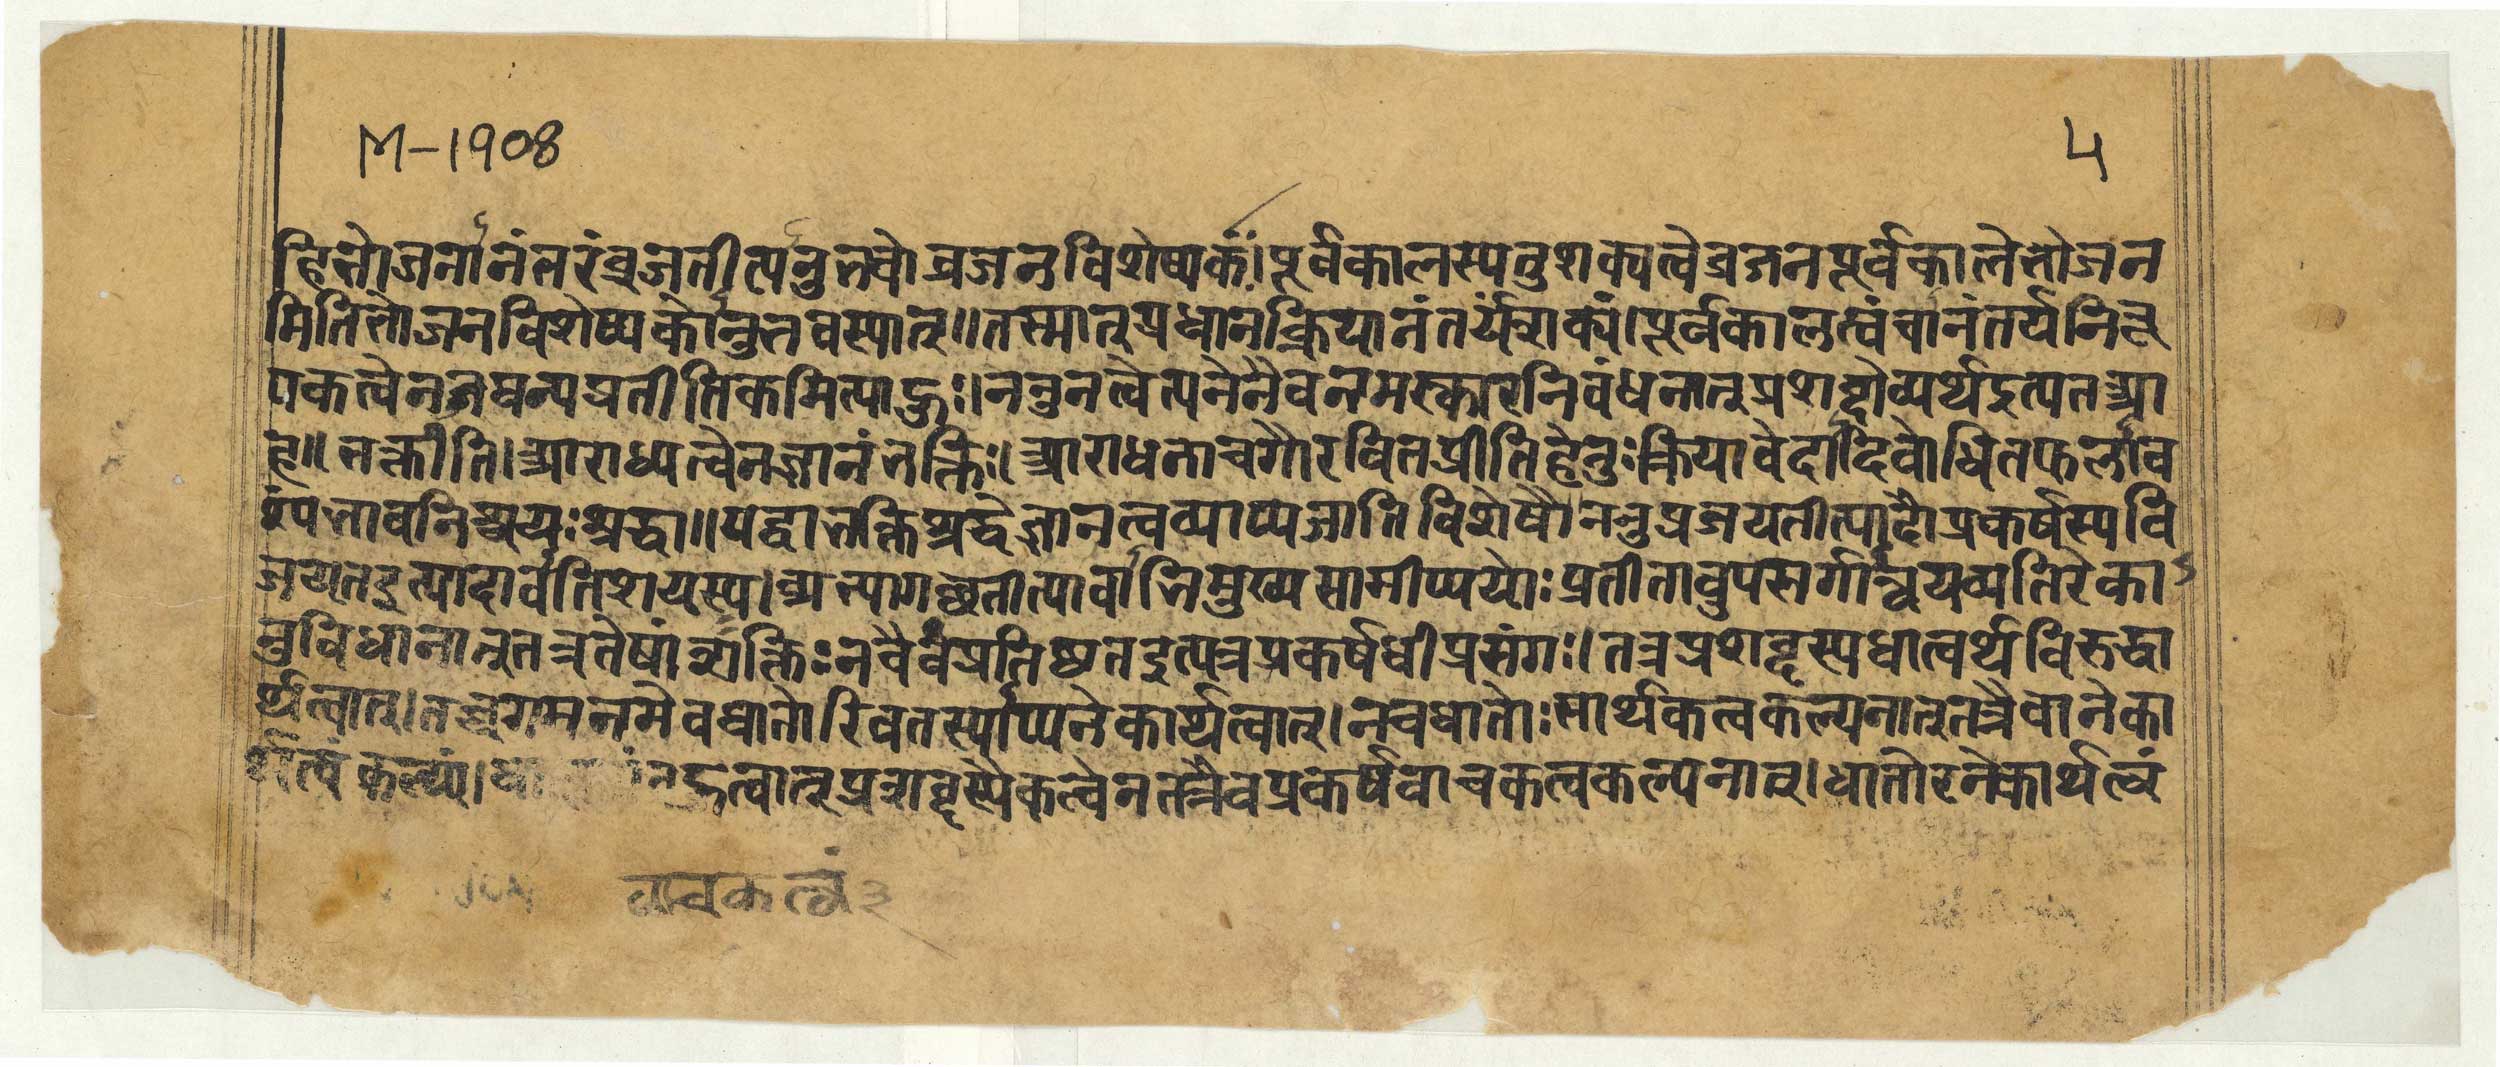 M-1908
५
हि भोजनानंतरं व्रजतीत्यनुभवो व्रजनविशेष्यकः। पूर्वकालस्य तु शक्यत्वे व्रजनपूर्वकाले भोजन
मिति भोजनविशेष्यकोनुभवस्यात्॥ तस्मात् प्रधानक्रियानंतर्यंशक्यं। पूर्वकालत्वं चानंतर्यनिरू
पकत्वेन जघन्यप्रतीतिकमित्याहुः। ननु नत्वेत्यनेनैव नमस्कारनिबंधनात् प्रशब्दो व्यर्थ इत्यत आ
ह॥ भक्तीति। आराध्यत्वेन ज्ञानं भक्तिः। आराधना च गौरवितप्रीतिहेतुः क्रिया वेदादिबोधितफलाव
श्यंभावनिश्चयः श्रद्धा॥ यद्वा भक्तिश्रद्धे ज्ञानत्वव्याप्यजातिविशेषौ ननु प्रजयतीत्यादौ प्रकर्षस्य वि
जयत इत्यादावतिशयस्य। अभ्यागच्छतीत्यादावाभिमुख्यसामीप्ययोः प्रतीतावुपसर्गान्वयव्यतिरेका
नुविधानात् तत्र तेषां शक्तिः न चैवं प्रतिष्ठत इत्यत्र प्रकर्षधीप्रसंगः। तत्र प्रशब्दस्य धात्वर्थविरुद्धा
र्थत्वात्। तच्च गमनमेव धातोरिव तस्याप्यनेकार्थत्वात्। न च धातोः सार्थकत्वकल्पनात् तत्रैवानेका
र्थत्वं कल्प्यं। बहुत्वात् प्रशब्दस्यैकत्वेन तत्रैव प्रकर्षवाचकत्वकल्पनात्। धातोरनेकार्थत्वं
वाचकत्वं ३